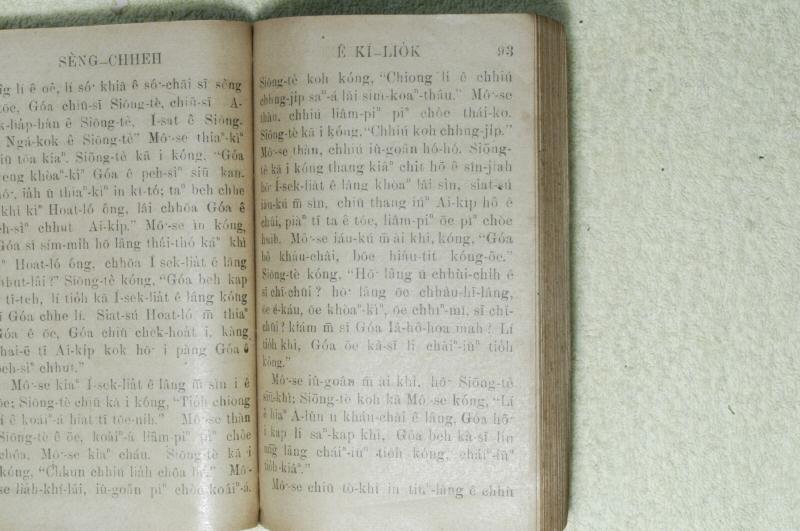 SÈNG-CHHEH
lí ê oē, lí số· khiā ê só·-chāi sī sèng
Góa chiū-sī Siōng-tè, chiū-sī A-
ê Siōng-tè, Í-sat ê Siōng-
Ngá-kok ê Siōng-tè” Mô·-se thiaⁿ-kìⁿ
tōa kiaⁿ. Siōng-tè kā i kóng, “Góa
khòaⁿ-kìⁿ Góa ê peh-sìⁿ siū kan-
iáh ū thiaⁿ-kìⁿ in kî-tó; taⁿ beh chhe
khì kìⁿ Hoat-ló ông, lâi chhōa Góa ê
chhut Ai-ki̍p.” Mô·-se ìn kóng,
Góa sī sím-mih hō lâng thái-thó káⁿ khì
Hoat-ló ông, chhōa Í-sek-lia̍t ê lâng
Siōng-tè kóng, “Góa beh kap
tī-teh, lí tio̍h kā Í-sek-lia̍t ê lâng kóng
Góa chhe lí. Siat-sú Hoat-ló m̄ thiaⁿ
Góa ê ōe, Góa chiū chek-hoa̍t i, kàng
tī Ai-ki̍p kok hō· i pàng Góa ê
peh-sìⁿ chhut.”
Mô·-se kiaⁿ Í-sek-lia̍t ê lâng m̄ sìn i ê
Siōng-tè chiū kā i kóng, “Tio̍h chiong
ê koáiⁿ-á hiat tī tōe-nih.” Mô·-se thàn
Siōng-tè ê ōe, koáiⁿ-á liâm-piⁿ pìⁿ chòe
chôa, Mô·-se kiaⁿ cháu. Siōng-tè kā i
kóng, “Chhun chhiú lia̍h chôa bé.” Mô·-
se lia̍h-khí-lâi, iû-goân pìⁿ chòe koáiⁿ-á.
Ê KÌ-LIO̍K 93
Siōng-tè koh kóng, “Chiong lí ê chhiú
chhng-ji̍p saⁿ-á lāi sim-koaⁿ-thâu.” Mô·-se
thàn, chhiú liâm-piⁿ pìⁿ chòe thái-ko.
Siōng-tè kā i kóng, “Chhiú koh chhng-ji̍p.”
Mô·-se thàn, chhiú iû-goân hó-hó. Siōng-
tè kā i kóng thang kiâⁿ chit hō ê sîn-jiah
hō· Í-sek-lia̍t ê lâng khòaⁿ lâi sìn, siat-sú
iáu-kú m̄ sìn, chiū thang iúⁿ Ai-ki̍p hô ê
chúi, piàⁿ tī ta ê tōe, liâm-piⁿ ōe pìⁿ chòe
huih. Mô·-se iáu-kú m̄ ài khì, kóng, “Góa
bô kháu-châi, bōe hiáu-tit kóng-ōe.”
Siōng-tè kóng, “Hō· lâng ū chhùi-chi̍h ê
sī chī-chūi? hō· lâng ōe chhàu-hī-lâng,
ōe é-káu, ōe khòaⁿ-kìⁿ, ōe chhiⁿ-mî, sī chī-
chūi? kiám m̄ sī Góa Iâ-hô-hoa mah? Lí
tio̍h khì, Góa ōe kà-sī lí cháiⁿ-iūⁿ tio̍h
kóng.”
Mô·-se iû-goân m̄ ài khì, hō· Siōng-tè
siū-khì; Siōng-tè koh kā Mô·-se kóng, “Lí
ê hiaⁿ A-lûn ū kháu-châi ê lâng, Góa hō·
i kap lí saⁿ-kap khì, Góa beh kà-sī lín
nn̄g lâng cháiⁿ-iūⁿ tio̍h kóng, cháiⁿ-iūⁿ
tio̍h-kiâⁿ.”
Mô·-se chiū tò-khì in tiūⁿ-lâng ê chhù